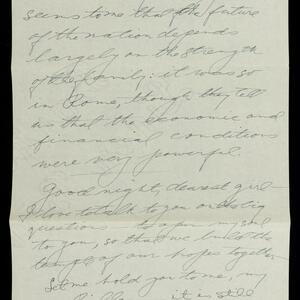 seems to me that the future
of the nation depends
largely on the strength
of the family: it was so
in Rome, though they tell
us that the economic and
financial conditions
were very powerful.
Good night, dearest girl
I love to talk to you on the big
questions to open my soul
to you, so that we build the
temple of our hopes together
Let me hold you to me, my
it is still